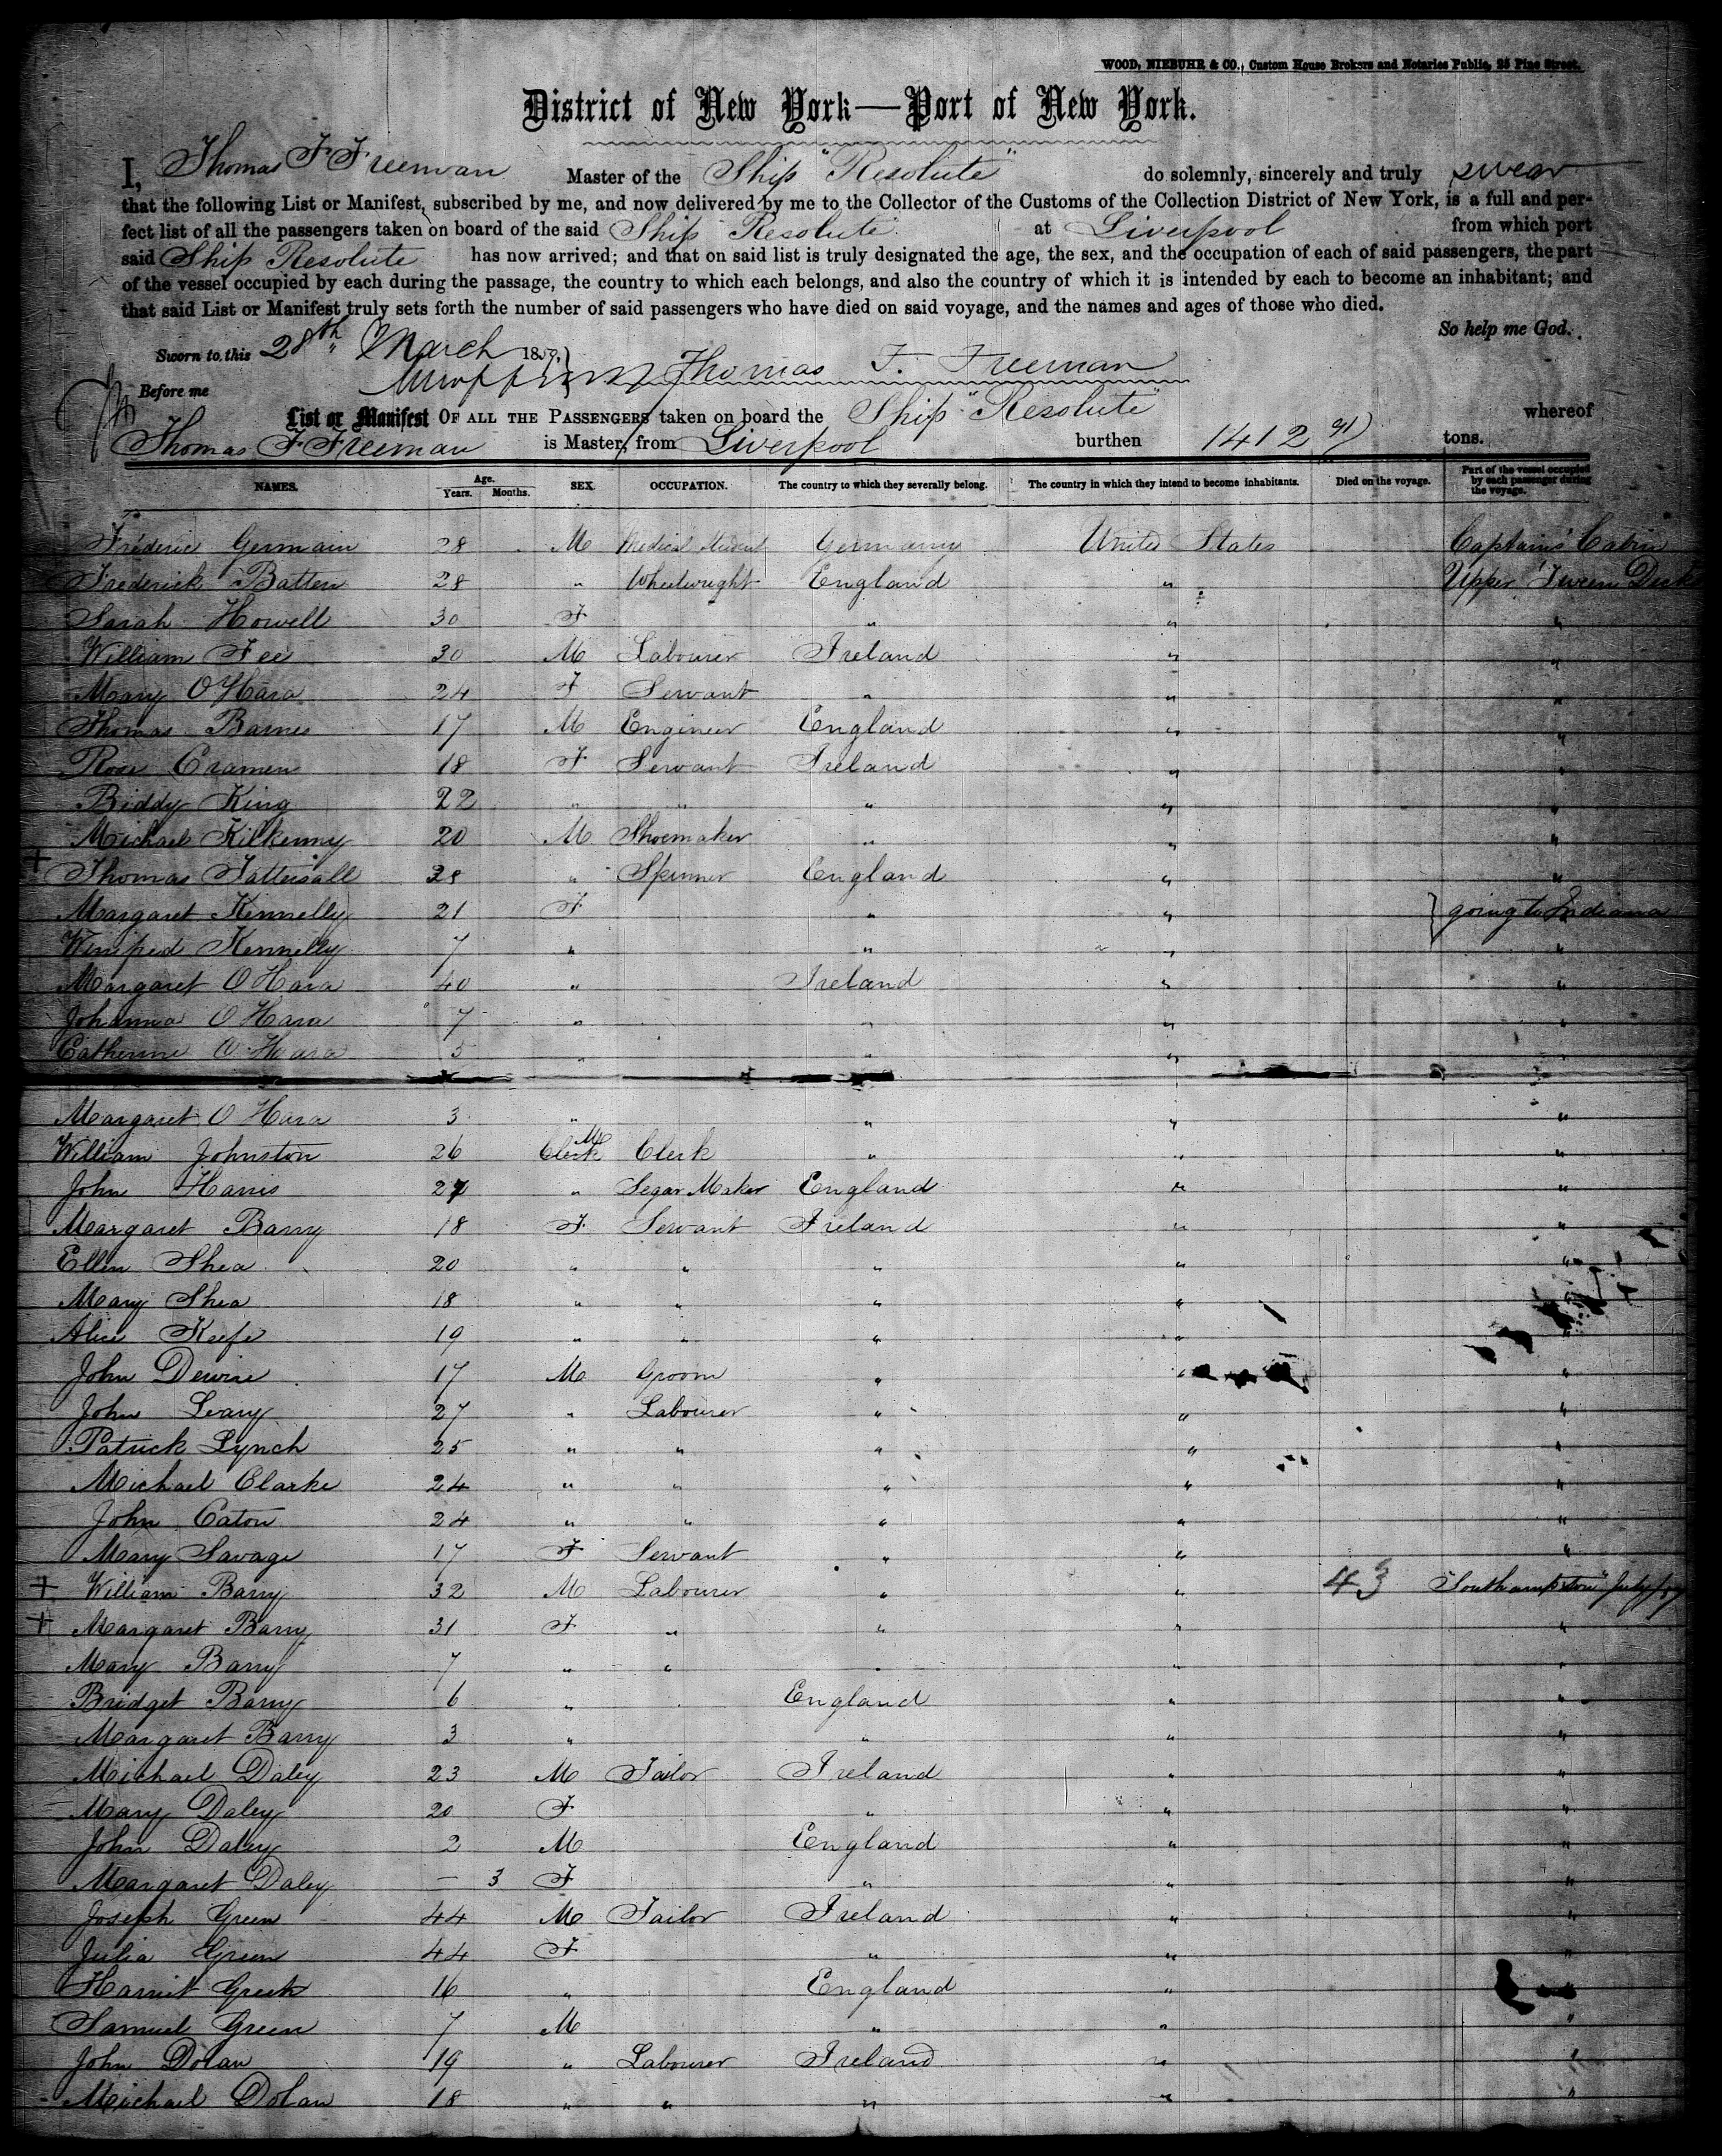 WOOD, NIEBUHR & CO., Custom House Brokers and Notaries Public, 25 Pine Street.
District of New York—Port of New York.
I, Thomas F Freeman Master of the Ship "Resolute" do solemnly, sincerely and truly swear
that the following List or Manifest, subscribed by me, and now delivered by me to the Collector of the Customs of the Collection District of New York, is a full and per-
fect list of all the passengers taken on board of the said Ship Resolute at Liverpool from which port
said Ship Resolute has now arrived; and that on said list is truly designated the age, the sex, and the occupation of each of said passengers, the part
of the vessel occupied by each during the passage, the country to which each belongs, and also the country of which it is intended by each to become an inhabitant; and
that said List or Manifest truly sets forth the number of said passengers who have died on said voyage, and the names and ages of those who died.
So help me God.
Sworn to this 28th March 185
Thomas F. Freeman
Before me
List or Manifest OF ALL THE PASSENGERS taken on board the Ship "Resolute" whereof
Thomas F Freeman is Master, from Liverpool burthen 1412 91 tons.
NAMES. Age. Years. Months. SEX. OCCUPATION. The country to which they severally belong. The country in which they intend to become inhabitants. Died on the voyage. Part of the vessel occupied by each passenger during the voyage.
Frederic Germain 28 M Medical Student Germany United States Captains Cabin
Frederick Batten 28 " Wheelwright England " Upper 'Tween Deck
Sarah Howell 30 F " " "
William Fee 30 M Labourer Ireland " "
Mary O'Hara 24 F Servant " " "
Thomas Barnes 17 M Engineer England " "
Rose Cramen 18 F Servant Ireland " "
Biddy King 22 " " " " "
Michael Kilkenny 20 M Shoemaker " " "
+ Thomas Tattersall 28 " Spinner England " "
Margaret Kennelly 21 F " " } going to Indiana
Winifred Kennelly 7 " " " "
Margaret O Hara 40 " Ireland " "
Johanna O Hara 7 " " " "
Catherine O Hara 5 " " " "
Margaret O Hara 3 " " " "
William Johnston 26 Clerk M Clerk " " "
John Harris 27 " Segar Maker England " "
Margaret Barry 18 F Servant Ireland " "
Ellen Shea 20 " " " " "
Mary Shea 18 " " " " "
Alice Keefe 19 " " " " "
John Devine 17 M Groom " " "
John Leary 27 " Labourer " " "
Patrick Lynch 25 " " " " "
Michael Clarke 24 " " " " "
John Eaton 24 " " " " "
Mary Savage 17 F Servant " " "
+ William Barry 32 M Labourer " " 43 "Southampton" July
+ Margaret Barry 31 F " " " "
Mary Barry 7 " " " " "
Bridget Barry 6 " England " "
Margaret Barry 3 " " " "
Michael Daley 23 M Tailor Ireland " "
Mary Daley 20 F " " "
John Daley 2 M England " "
Margaret Daley — 3 F " " "
Joseph Green 44 M Tailor Ireland " "
Julia Green 44 F " " "
Harriet Green 16 " England " "
Samuel Green 7 M " " "
John Dolan 19 " Labourer Ireland " "
Michael Dolan 18 " " " " "